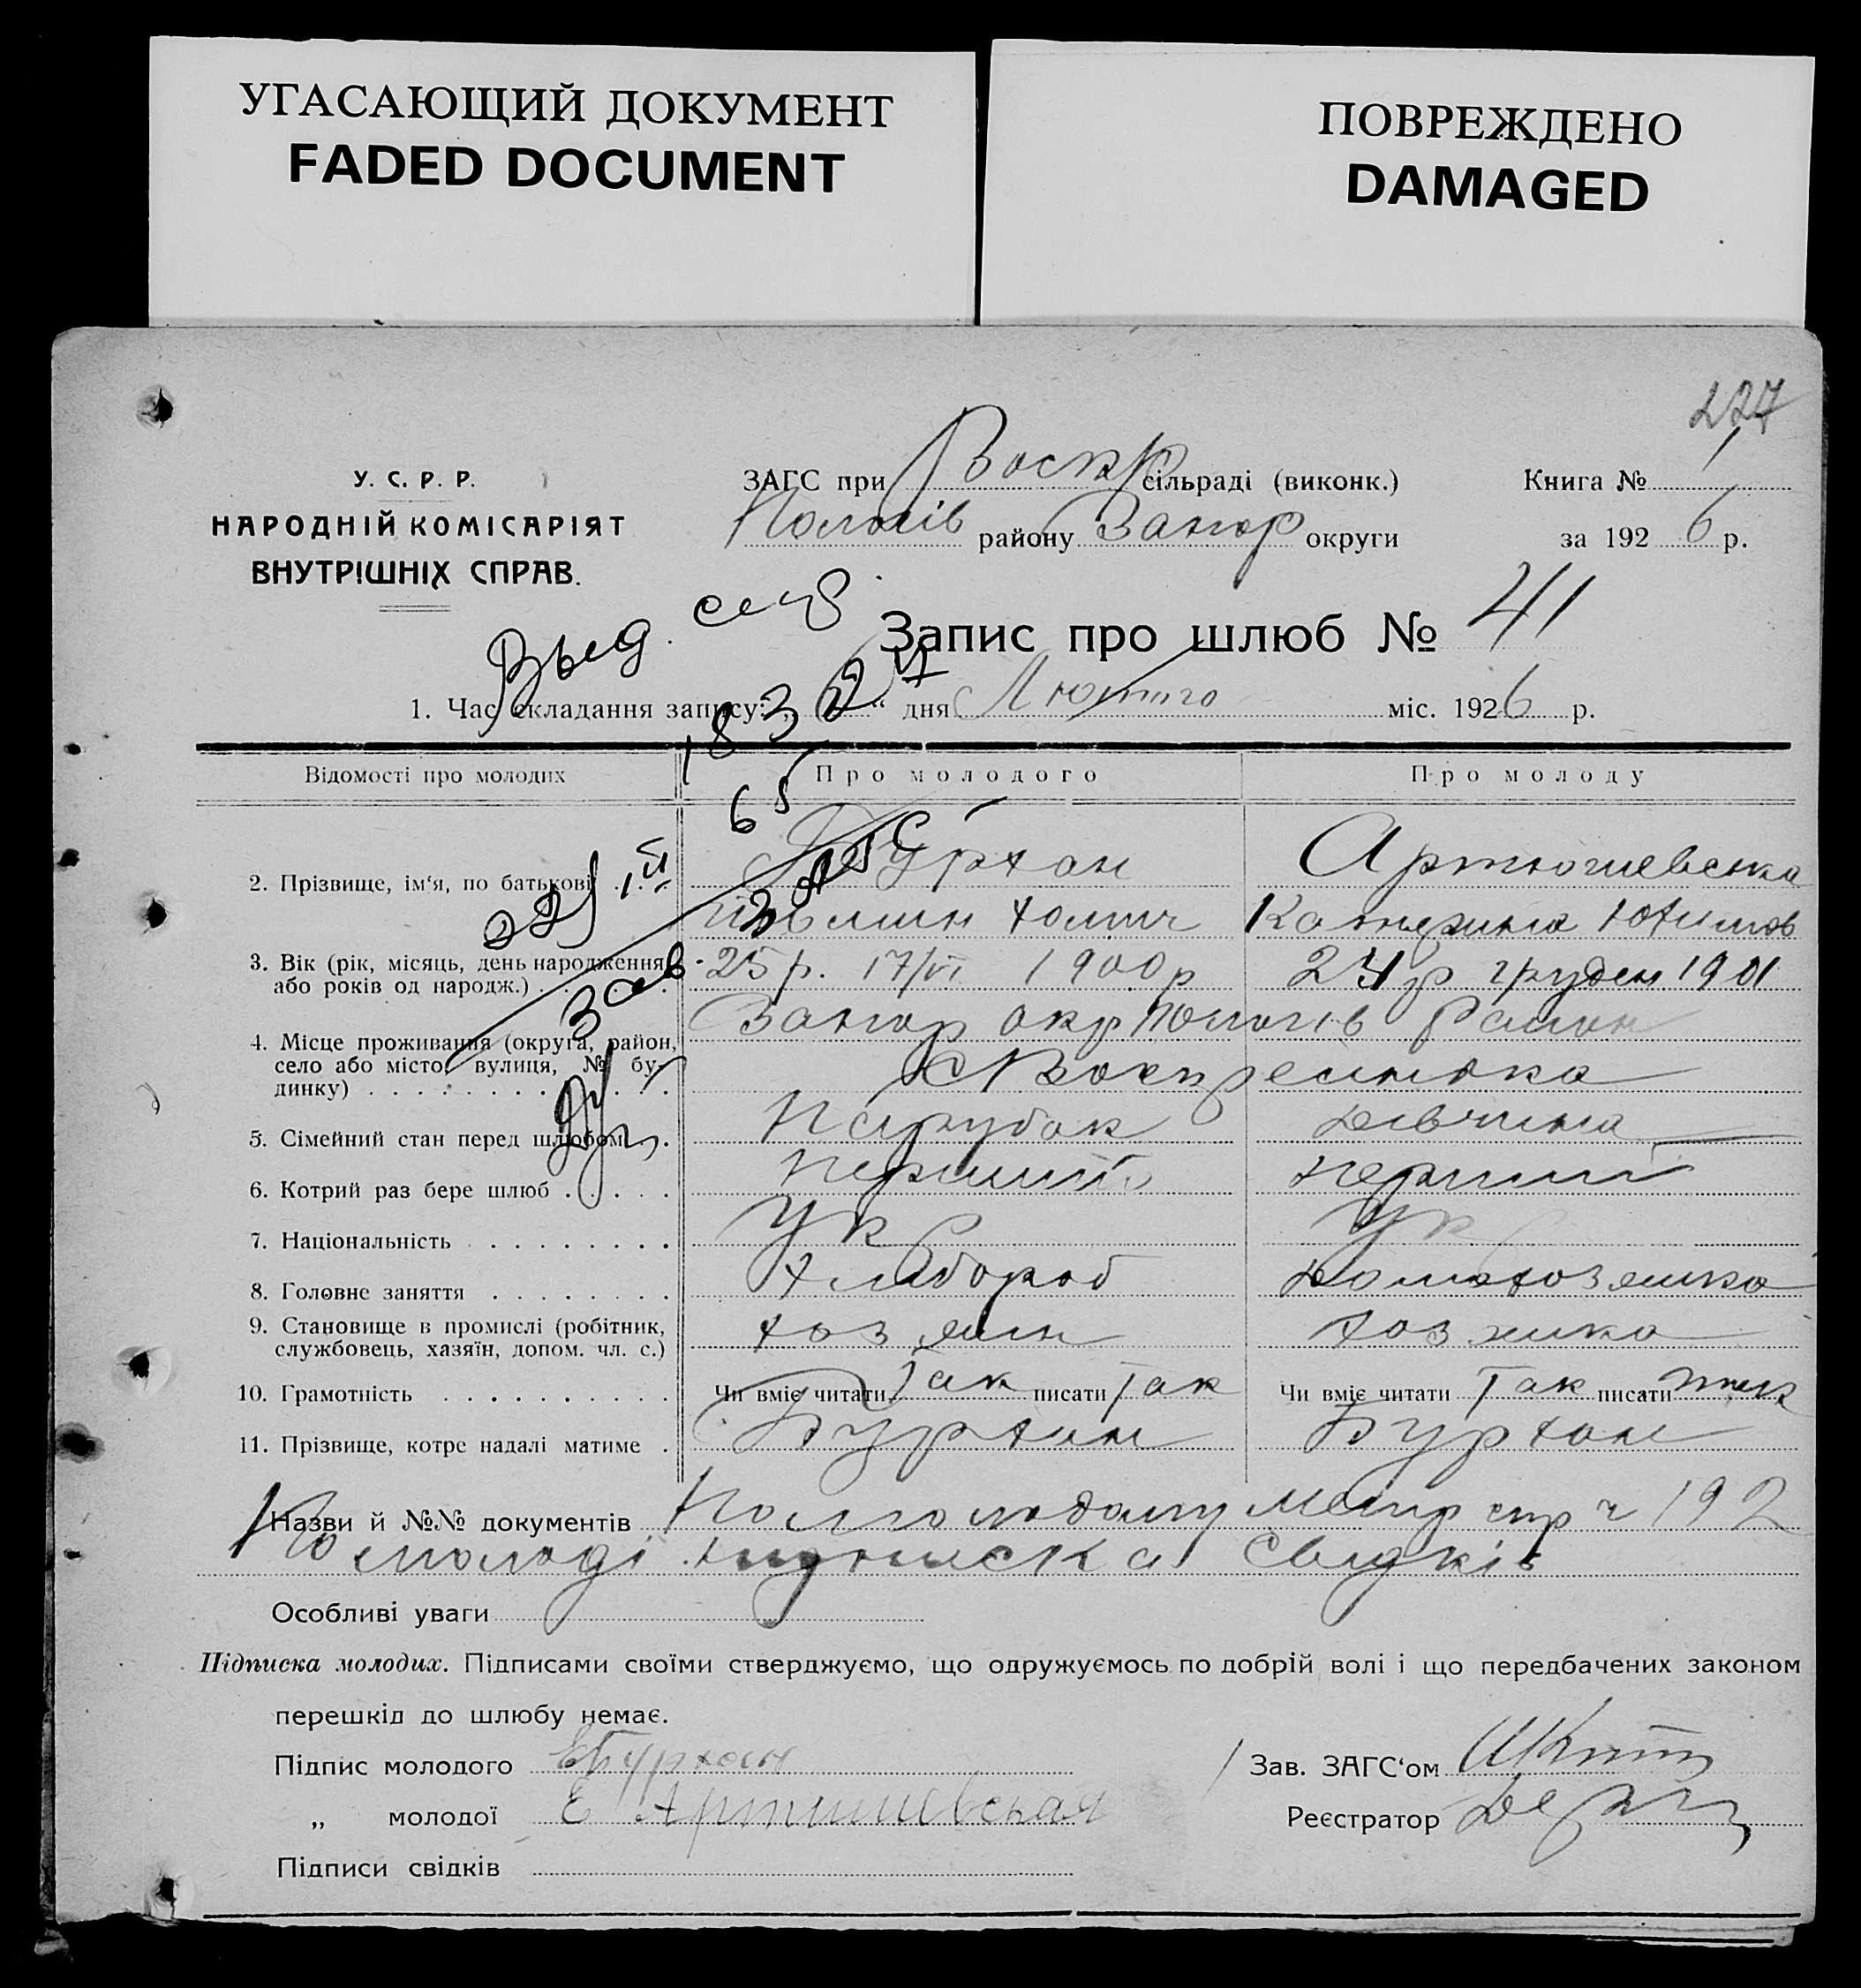 УГАСАЮЩИЙ ДОКУМЕНТ
FADED DOCUMENT
ПОВРЕЖДЕНО
DAMAGED
227
У. С. Р. Р.
НАРОДНІЙ КОМІСАРІЯТ
ВНУТРІШНІХ СПРАВ.
ЗАГС при Воскр сільраді (виконк.)
Пологів району Запор округи
Книга № 1
за 1926 р.
Запис про шлюб № 41
1. Час складання запису: „ “ дня Лютого міс. 1926 р.
Выд.
183
65
ЗАГС
Зав
Відомості про молодих Про молодого Про молоду
2. Прізвище, ім‘я, по батькові Бурхан Артюшевська
Катерина Юхимов
3. Вік (рік, місяць, день народження, або років од народж.) 25 р. 17/VI 1900 р 24 р грудень 1901
4. Місце проживання (округа, район, село або місто, вулиця, № будинку) Запор окр Пологів Район
с Воскресенка
5. Сімейний стан перед шлюбом Парубок Дівчина
6. Котрий раз бере шлюб Перший Перший
7. Національність Ук Ук
8. Головне заняття Хлібороб Домохозяйка
9. Становище в промислі (робітник, службовець, хазяїн, допом. чл. с.) хозяин хозяйка
10. Грамотність Чи вміє читати Так писати Так Чи вміє читати Так писати так
11. Прізвище, котре надалі матиме Бурхан Бурхан
Назви й №№ документів По молодому Метр 192
По молоді підписка свидків
Особливі уваги
Підписка молодих. Підписами своїми стверджуємо, що одружуємось по добрій волі і що передбачених законом
перешкід до шлюбу немає.
Підпис молодого Бурхан
Зав. ЗАГС‘ом
„ молодої Е Артюшевская
Реєстратор
Підписи свідків